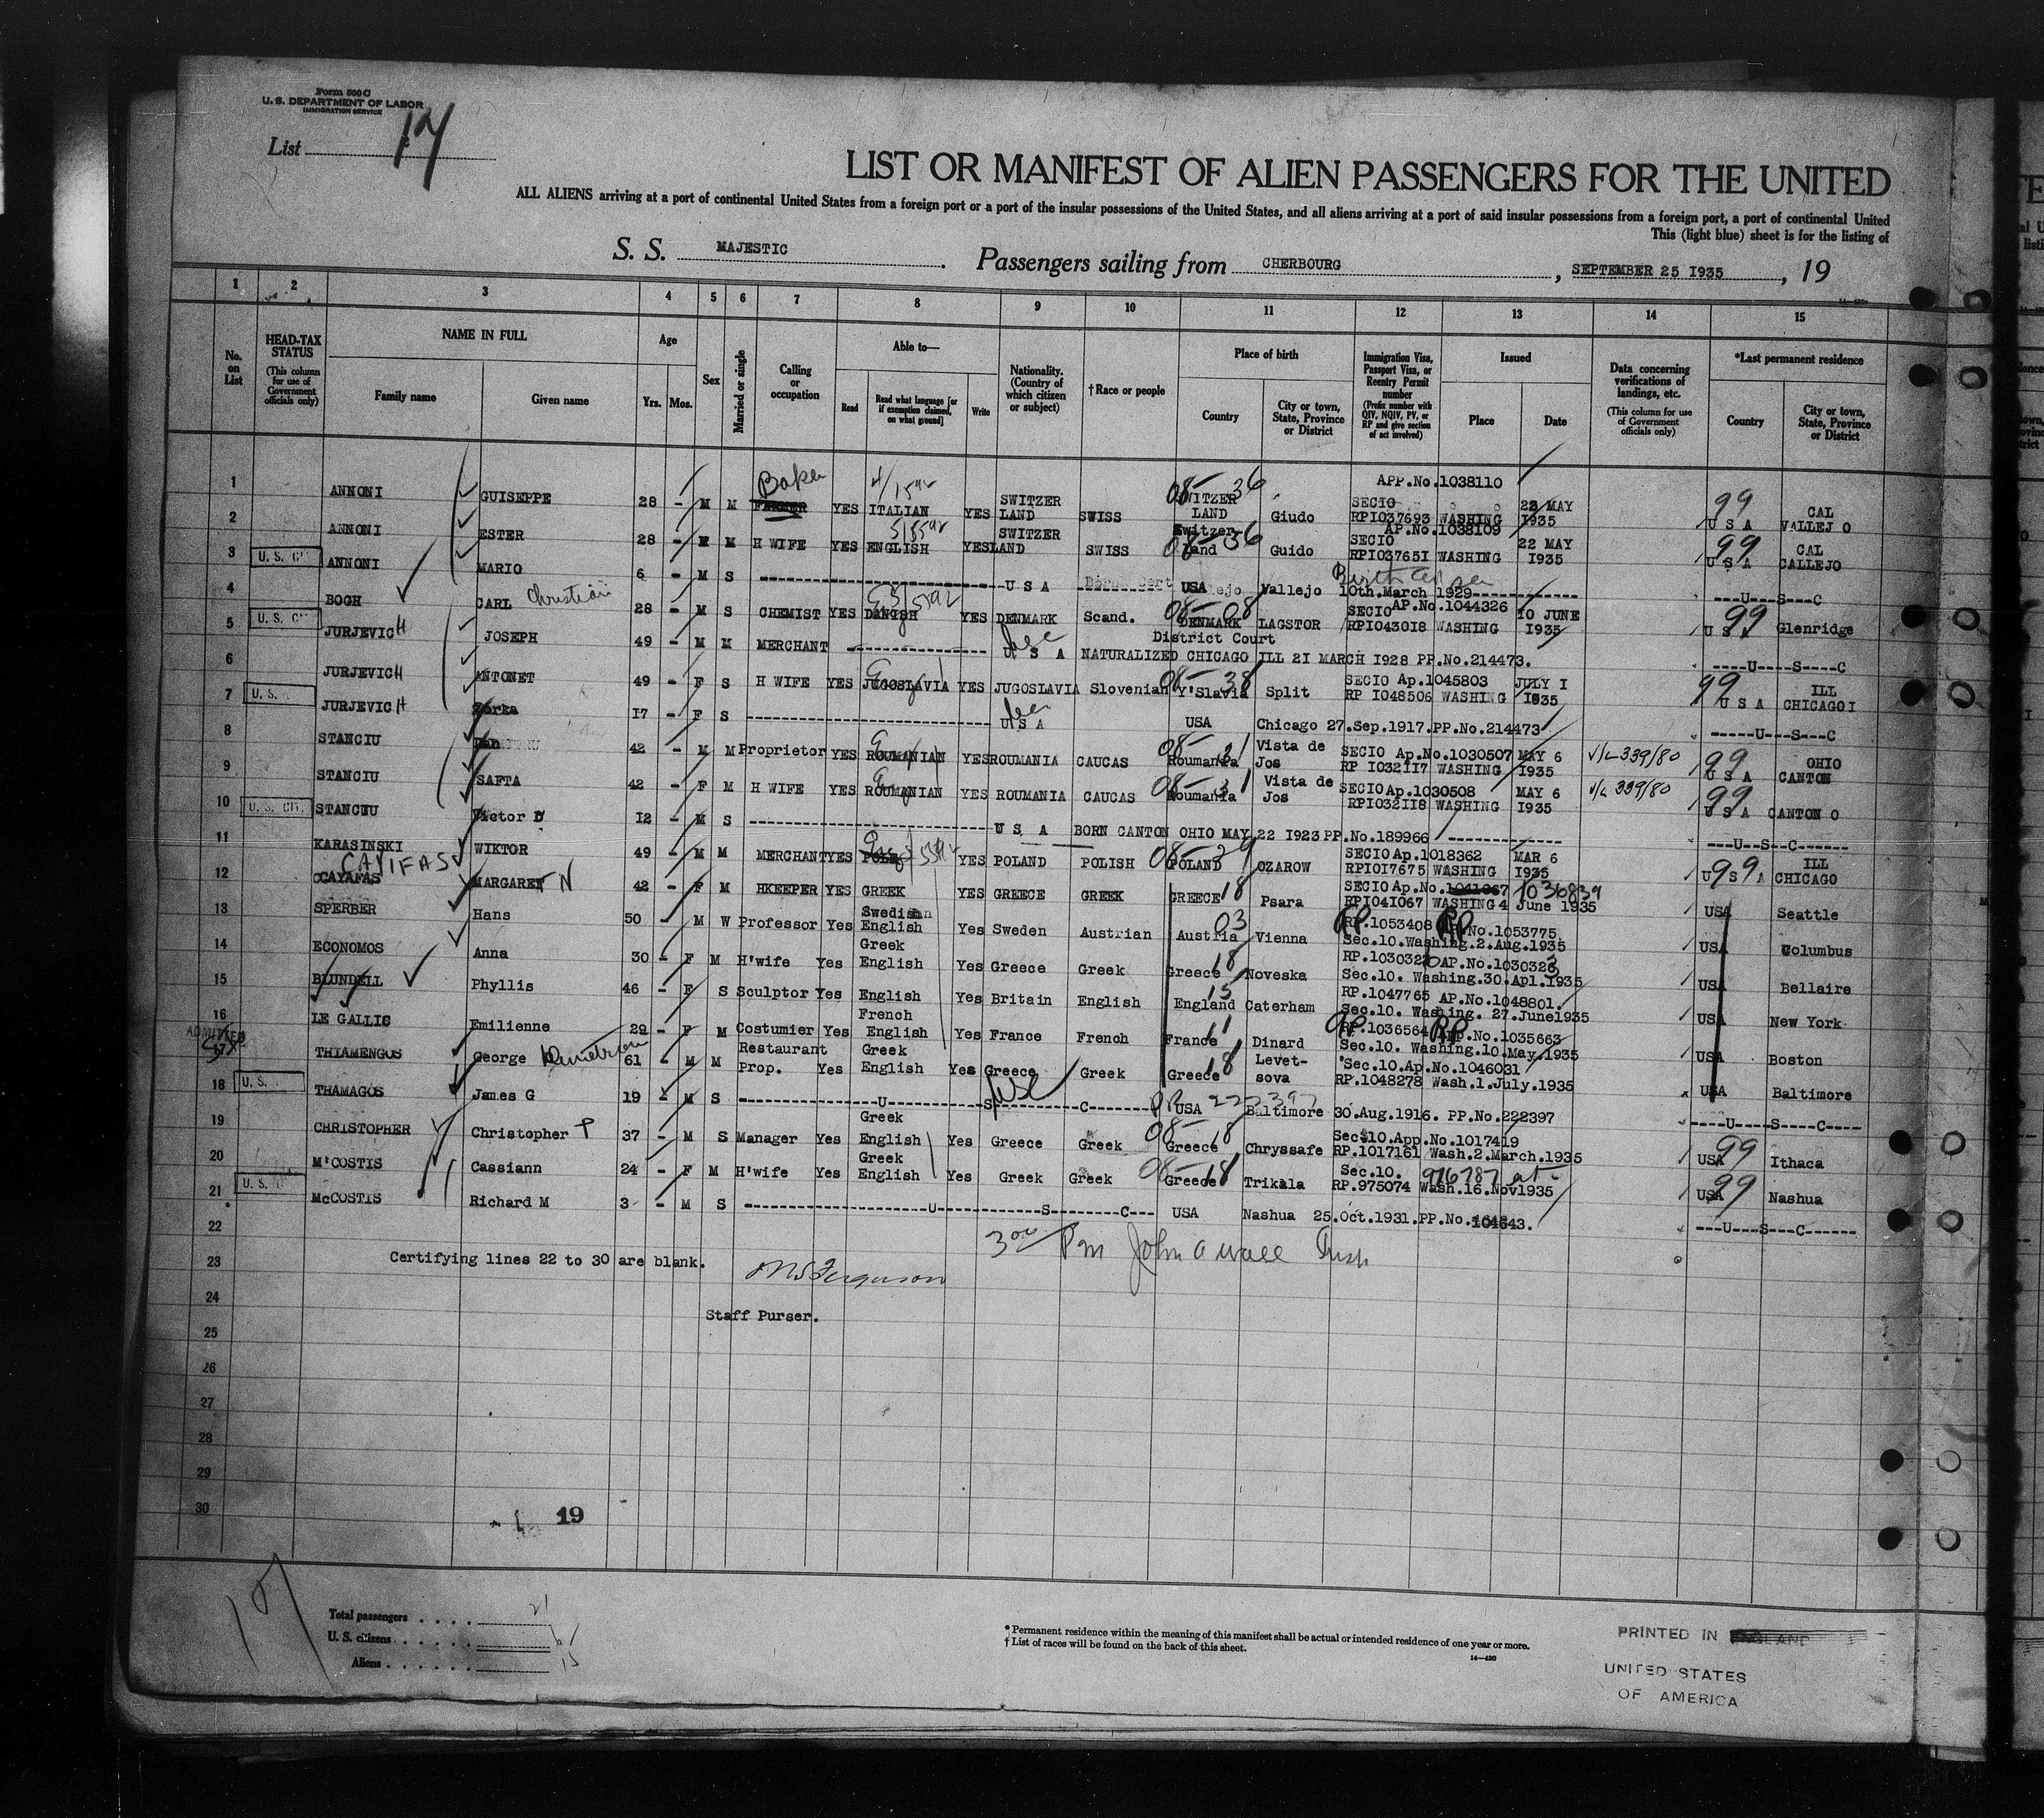 Form 500 C
U. S. DEPARTMENT OF LABOR
IMMIGRATION SERVICE
List 17
LIST OR MANIFEST OF ALIEN PASSENGERS FOR THE UNITED
ALL ALIENS arriving at a port of continental United States from a foreign port or a port of the insular possessions of the United States, and all aliens arriving at a port of said insular possessions from a foreign port, a port of continental United
This (light blue) sheet is for the listing of
S. S. MAJESTIC . Passengers sailing from CHERBOURG , SEPTEMBER 25 I935 , 19
1 2 3 4 5 6 7 8 9 10 11 12 13 14 15
No. on List
HEAD-TAX STATUS (This column for use of Government officials only)
NAME IN FULL
Family name Given name
Age Yrs. Mos.
Sex
Married or single
Calling or occupation
Able to— Read Read what language [or if exemption claimed, on what ground] Write
Nationality. (Country of which citizen or subject)
†Race or people
Place of birth Country City or town, State, Province or District
Immigration Visa, Passport Visa, or Reentry Permit number (Prefix number with QIV, NQIV, PV, or RP and give section of act involved)
Issued Place Date
Data concerning verifications of landings, etc. (This column for use of Government officials only)
*Last permanent residence Country City or town, State, Province or District
1 ANNONI GUISEPPE 28 - M M Baker FARMER YES ITALIAN YES SWITZER LAND SWISS SWITZER LAND 08-36 Giudo APP.No.1038110 SECIO RPI037693 WASHING 22 MAY I935 99 U S A CAL VALLEJ O
2 ANNONI ESTER 28 - M H WIFE YES ENGLISH YES SWITZER LAND SWISS Switzer land 08-36 Guido AP.No.1038109 SECIO RPI03765I WASHING 22 MAY I935 99 U S A CAL CALLEJO
3 U. S. CI ANNONI MARIO 6 - M S U S A USA Vallejo 10th.March 1929 ---U---S---C
4 BOGH CARL Christian 28 - M S CHEMIST YES DANISH YES DENMARK Scand. DENMARK 08-08 LAGSTOR SECIO AP.No.1044326 RPI0430I8 WASHING I0 JUNE I935 99 U S A Glenridge
5 U. S. CI JURJEVICH JOSEPH 49 - M M MERCHANT U S A District Court NATURALIZED CHICAGO ILL 2I MARCH I928 PP.No.214473. ----U----S----C
6 JURJEVICH ANTONET 49 - F S H WIFE YES JUGOSLAVIA YES JUGOSLAVIA Slovenian Y'Slavia 08-38 Split SECIO Ap.1045803 RP I048506 WASHING JULY I I935 99 U S A ILL CHICAGOI
7 U. S. JURJEVICH Zorka I7 - F S U S A USA Chicago 27.Sep.1917.PP.No.214473 -----U---S---C
8 STANCIU Dan 42 - M M Proprietor YES ROUMANIAN YES ROUMANIA CAUCAS Roumania Vista de Jos SECIO Ap.No.1030507 RP I032II7 WASHING MAY 6 I935 V/L 339/80 99 U S A OHIO CANTON
9 STANCIU SAFTA 42 - F M H WIFE YES ROUMANIAN YES ROUMANIA CAUCAS Roumania 08-31 Vista de Jos SECIO Ap.1030508 RPI032II8 WASHING MAY 6 I935 V/L 339/80 99 U S A CANTON O
10 U. S. CIT. STANCIU Victor D I2 - M S U S A BORN CANTON OHIO MAY 22 I923 PP.No.189966 ---U---S---C
11 KARASINSKI WIKTOR 49 - M M MERCHANT YES POLE YES POLAND POLISH POLAND 08-29 OZAROW SECIO Ap.1018362 RPI0I7675 WASHING MAR 6 I935 99 U S A ILL CHICAGO
12 CAYAFAS CAVIFAS MARGARET N 42 - F M HKEEPER YES GREEK YES GREECE GREEK GREECE 18 Psara SECIO Ap.No.1041067 1036839 RPI04I067 WASHING 4 June 1935 USA Seattle
13 SPERBER Hans 50 - M W Professor Yes Swedish English Yes Sweden Austrian Austria 03 Vienna RP.1053408 AP.No.1053775 Sec.10.Washing.2.Aug.1935 USA Columbus
14 ECONOMOS Anna 30 - F M H'wife Yes Greek English Yes Greece Greek Greece 18 Noveska RP.1030322 AP.No.1030323 Sec.10. Washing.30.Apl.1935 USA Bellaire
15 BLUNDELL Phyllis 46 - F S Sculptor Yes English Yes Britain English England 15 Caterham RP.1047765 AP.No.1048801. Sec.10. Washing. 27.June1935 USA New York
16 LE GALLIS Emilienne 29 - F M Costumier Yes French English Yes France French France 11 Dinard RP.1036564 AP.No.1035663 Sec.10. Washing.10.May.1935 USA Boston
17 ADMITTED THIAMENGOS George 61 - M M Restaurant Prop. Yes Greek English Yes Greece Greek Greece 18 Levet- sova Sec.10.Ap.No.1046031 RP.1048278 Wash.1.July.1935 USA Baltimore
18 U. S. THAMAGOS James G 19 - M S U S C USC PP 222397 USA Baltimore 30.Aug.1916. PP.No.222397 ----U----S----C----
19 CHRISTOPHER Christopher P 37 - M S Manager Yes Greek English Yes Greece Greek Greece 08-18 Chryssafe Sec.10.App.No.1017419 RP.1017161 Wash.2.March.1935 USA 99 Ithaca
20 M'COSTIS Cassiann 24 - F M H'wife Yes Greek English Yes Greek Greek Greece 08-18 Trikala Sec.10. 976787 RP.975074 Wash.16.Nov1935 USA 99 Nashua
21 U. S. C McCOSTIS Richard M 3 - M S U S C USA Nashua 25.Oct.1931.PP.No. ---U---S---C------
22 3 00 Pm John A
23 Certifying lines 22 to 30 are blank. Ferguson
24 Staff Purser.
25
26
27
28
29
30
19
Total passengers . . . . 21
U. S. citizens . . . . . . 6
Aliens . . . . . . 15
* Permanent residence within the meaning of this manifest shall be actual or intended residence of one year or more.
† List of races will be found on the back of this sheet.
14—430
PRINTED IN ENGLAND
UNITED STATES
OF AMERICA